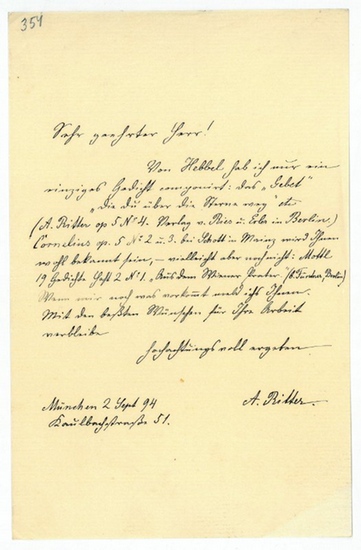 354
Sehr geehrter Herr!
Von Hebbel hab ich nur ein
einziges Gedicht componirt: das „Gebet"
„Die du über die Sterne weg" etc
(A. Ritter op 5 No 4. Verlag v. Ries u. Erler in Berlin.)
Cornelius op. 5 No 2 u 3. bei Schott in Mainz wird Ihnen
wohl bekannt sein, – vielleicht aber noch nicht: Mottl
19 Gedichte Heft 2 No 1. „Aus dem Wiener Prater" Berlin)
Wenn mir noch was vorkommt meld ichs Ihnen.
Mit den beßten Wünschen für Ihre Arbeit
verbleibe
hochachtungsvoll ergeben
A. Ritter.
München 2 Sept 94
Kaulbachstrasse 51.